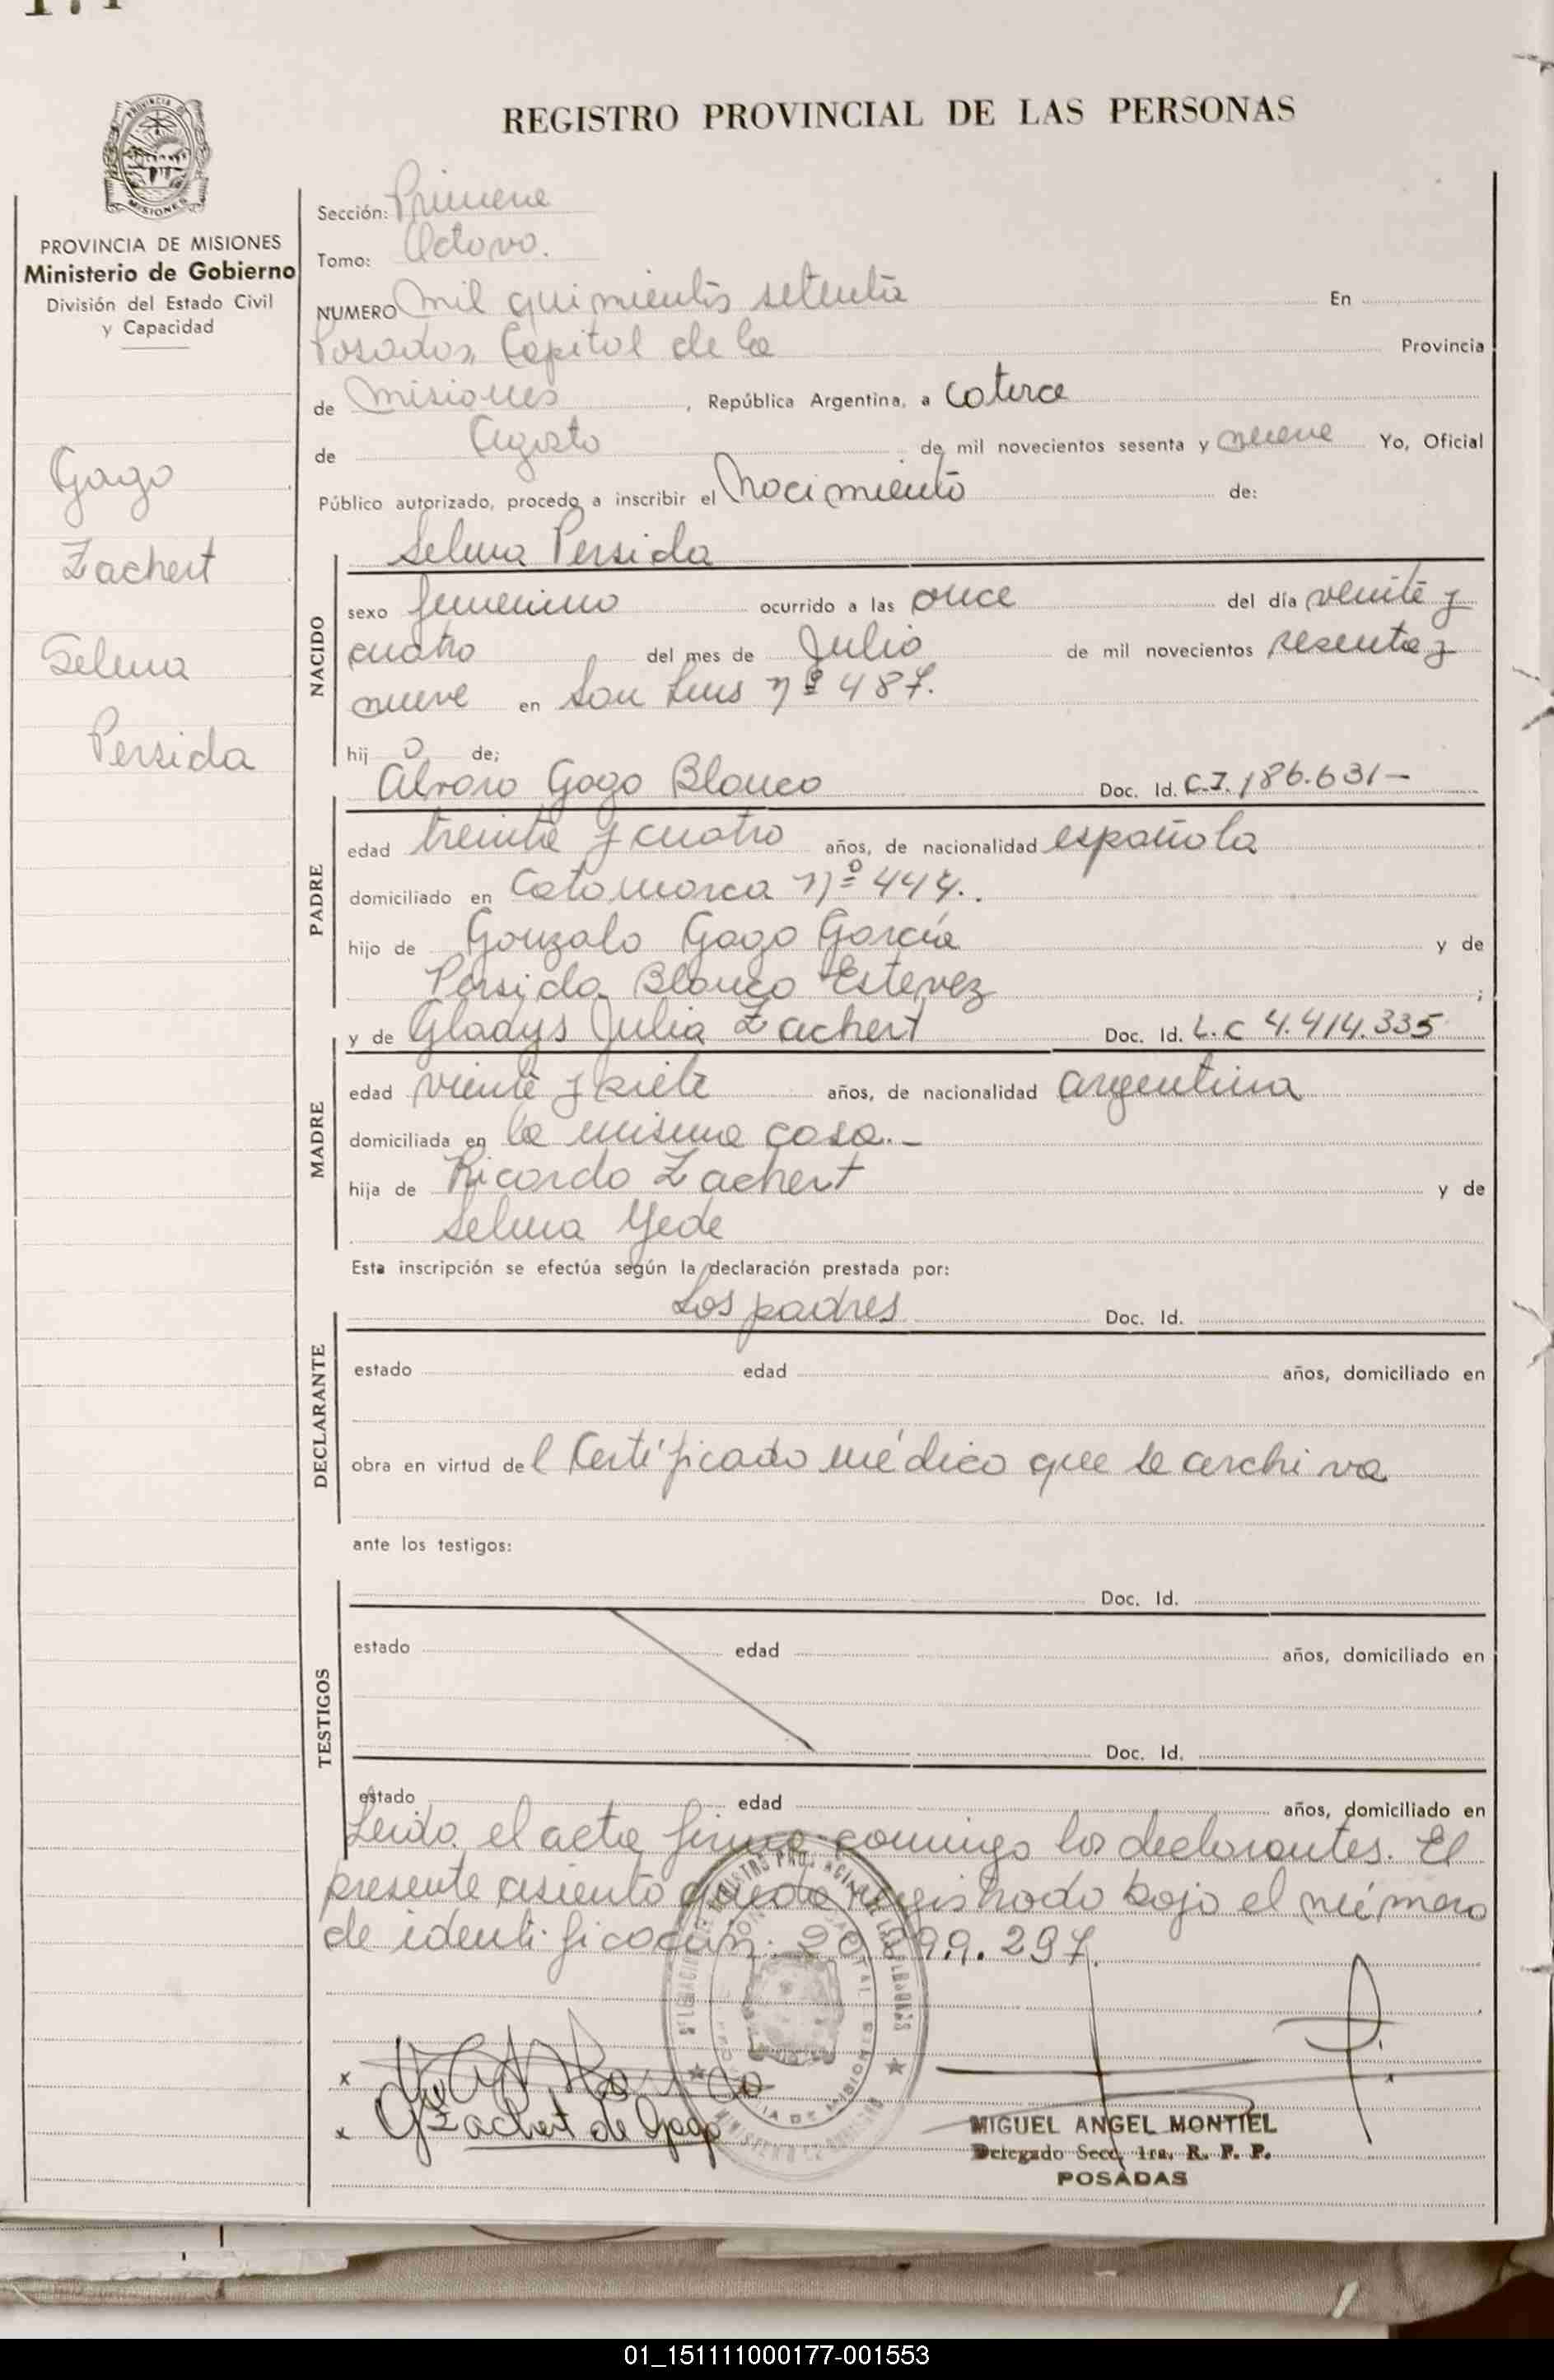 REGISTRO PROVINCIAL DE LAS PERSONAS
MISIONES
PROVINCIA DE MISIONES
Ministerio de Gobierno
División del Estado Civil
y Capacidad
Gago
Zachert
Selma
Persida
Sección: Primera
Tomo: Octavo.
NUMERO mil quinientos setenta En
Posadas, Capital de la Provincia
de Misiones, República Argentina, a catorce
de Agosto de mil novecientos sesenta y nueve Yo, Oficial
Público autorizado, procedo a inscribir el Nacimiento de:
Selma Persida
NACIDO
sexo femenino ocurrido a las once del día veinte y
cuatro del mes de Julio de mil novecientos sesenta y
nueve en San Luis nº 487.
hij o de;
Alvaro Gago Blanco Doc. Id. C.I. 186.631-
PADRE
edad treinta y cuatro años, de nacionalidad española
domiciliado en Catamarca nº 444.
hijo de Gonzalo Gago García y de
Persida Blanco Estevez ;
y de Gladys Julia Zachert Doc. Id. L.C 4.414.335
MADRE
edad veinte y siete años, de nacionalidad argentina
domiciliada en la misma casa.-
hija de Ricardo Zachert y de
Selma Yede
Esta inscripción se efectúa según la declaración prestada por:
Los padres Doc. Id.
DECLARANTE
estado edad años, domiciliado en
obra en virtud de l Certificado médico que se archiva
ante los testigos:
Doc. Id.
TESTIGOS
estado edad años, domiciliado en
Doc. Id.
estado edad años, domiciliado en
Leida el acta firma conmigo los declarantes. El
presente asiento queda registrado bajo el número
de identificación: 20.899.297.
G Zachert de Gago
MIGUEL ANGEL MONTIEL
Delegado Secc. 1ra. R. P. P.
POSADAS
01_151111000177-001553